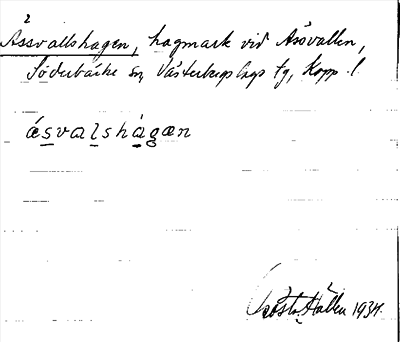 2
Assvallshagen, hagmark vid Åsvallen,
Söderbärke sn, Västerbergslags fg, Kopp. l.
ásvalshágæn
Gösta Hallen 1934.